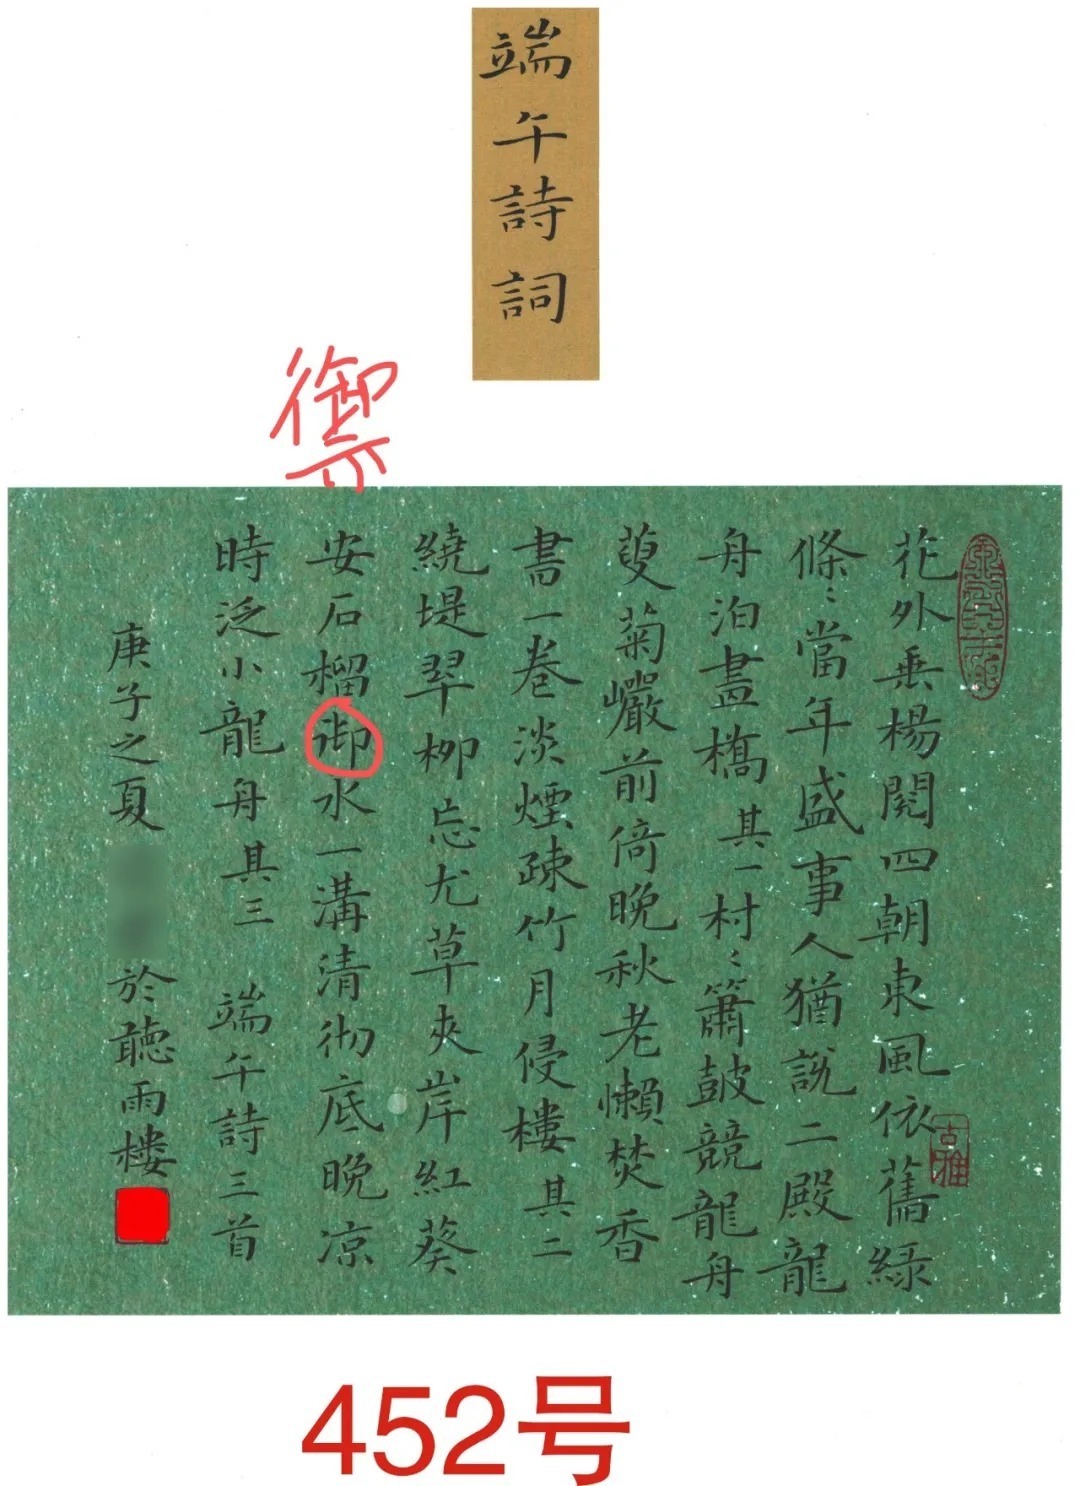 端午詩詞
禦
花外垂楊閱四朝東風依舊綠
條〻當年盛事人猶說二殿龍
舟泊畫橋 其一 村〻簫鼓競龍舟
菊巗前倚晚秋老懶焚香
書一卷淡煙疎竹月侵樓 其二
繞堤翠柳忘尤草夾岸紅葵
安石榴御水一溝清彻底晚凉
時泛小龍舟 其三 端午詩三首
庚子之夏 於聽雨樓
古雅
452号